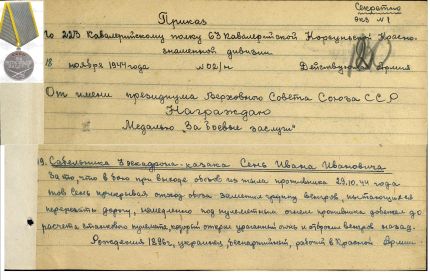 Секретно
экз № 1
Приказ
По 223 Кавалерийскому полку 63 Кавалерийской Корсуньской Красно-
знаменной дивизии.
18 ноября 1944 года № 02/н Действующая Армия
От имени президиума Верховного Совета Союза ССР
Награждаю
Медалью "За боевые заслуги"
19. Сабельника эскадрона - казака Сень Ивана Ивановича
За то, что в бою при выходе обозов из тыла противника 29.10.44 года
тов Сень прикрывая отход обоза заметил группу венгров, пытающихся
перерезать дорогу, немедленно под пулеметным огнем противника добежал до
расчета станкового пулемета, который открыл ураганный огонь и отбросил венгров назад.
Рождения 1896г, украинец, беспартийный, рабочий в Красной Армии